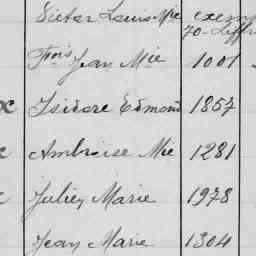 Victor Louis Mie exem
70-Liffr
Frois Jean Mie 1001
x Isidore Edmond 1857
Ambroise Mie 1281
Julien Marie 1978
Jean Marie 1304